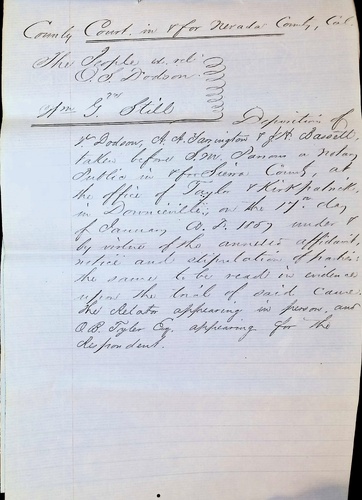 County Court in & for Nevada County, Cal
The People ex rel
O. S. Dodson.
vs
Wm G. Still
Deposition of
Dodson, A. A. Farrington & J. H. Bassett
taken before S. M. Parsons a Notary
Public in & for Sierra County, at
the office of Taylor & Kirkpatrick,
in Downieville, on the 17th day
of January A. D. 1857 under &
by virtue of the annexed affidavit
notice and stipulation of parties
the same to be read in evidence
upon the trial of said cause.
The Relator appearing in person, and
O. B. Tyler Esq. appearing for the
Respondent.